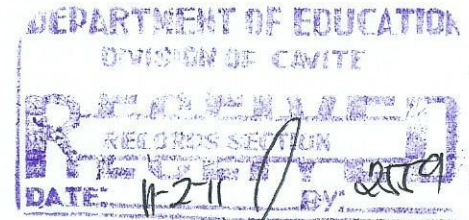 DEPARTMENT OF EDUCATION
DIVISION OF CAVITE
RECEIVED
RECORDS SECTION
DATE: 11-2-11 BY: